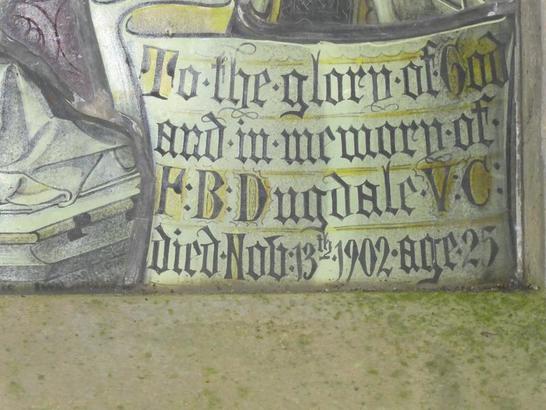 To·the·glory·of·God
and·in·memory·of·
F·B·Dugdale·V·C·
died·Nov·13th·1902·age·25